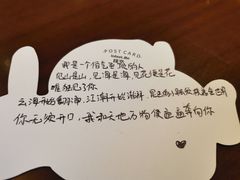 POST CARD
我是一个俗气至顶的人
见山是山，见海是海，见花便是花
唯独见了你
云海开始翻涌，江潮开始澎湃
你无须开口，我和天地万物便通通奔向你